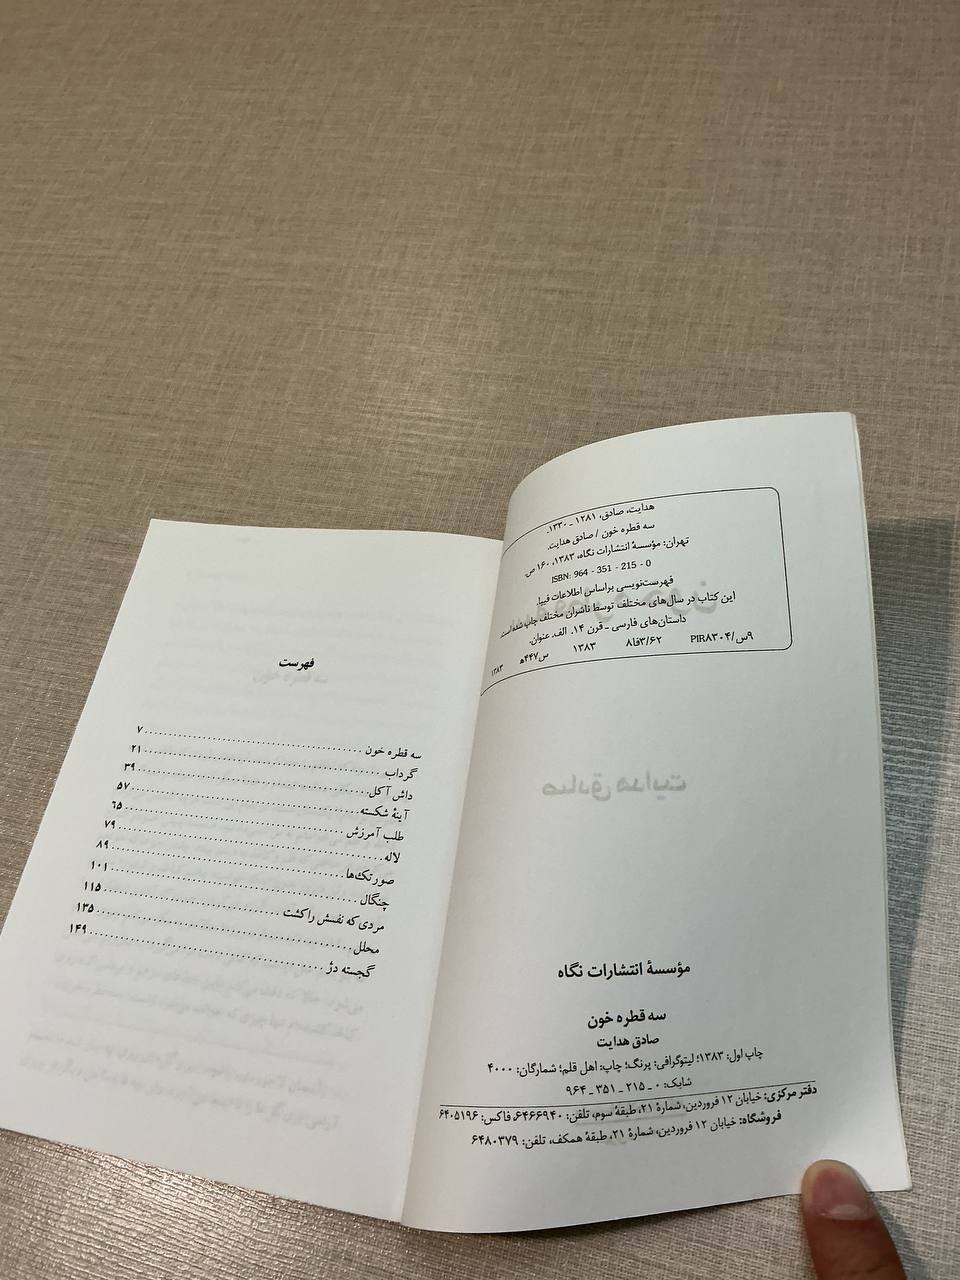 هدایت، صادق، ۱۲۸۱ ـ ۱۳۳۰.
سه قطره خون / صادق هدایت.
تهران: مؤسسهٔ انتشارات نگاه، ۱۳۸۳، ۱۶۰ ص.
ISBN: 964 - 351 - 215 - 0
فهرست‌نویسی براساس اطلاعات فیپا.
این کتاب در سال‌های مختلف توسط ناشران مختلف چاپ شده است.
داستان‌های فارسی ـ قرن ۱۴. الف. عنوان.
۹س/PIR۸۳۰۴ ۸فا۳/۶۲ ۱۳۸۳ س۴۴۷ه ۱۳۸۳
صادق هدایت
مؤسسهٔ انتشارات نگاه
سه قطره خون
صادق هدایت
چاپ اول: ۱۳۸۳؛ لیتوگرافی: پرنگ؛ چاپ: اهل قلم؛ شمارگان: ۴۰۰۰
شابک: ۰ ـ ۲۱۵ ـ ۳۵۱ ـ ۹۶۴
دفتر مرکزی: خیابان ۱۲ فروردین، شمارهٔ ۲۱، طبقهٔ سوم، تلفن: ۶۴۶۶۹۴۰، فاکس: ۶۴۰۵۱۹۶
فروشگاه: خیابان ۱۲ فروردین، شمارهٔ ۲۱، طبقهٔ همکف، تلفن: ۶۴۸۰۳۷۹
فهرست
سه قطره خون
سه قطره خون ........ ۷
گرداب ........ ۲۱
داش آکل ........ ۳۹
آینهٔ شکسته ........ ۵۷
طلب آمرزش ........ ۶۵
لاله ........ ۷۹
صورتک‌ها ........ ۸۹
چنگال ........ ۱۰۱
مردی که نفسش را کشت ........ ۱۱۵
محلل ........ ۱۳۵
گجسته دژ ........ ۱۴۹